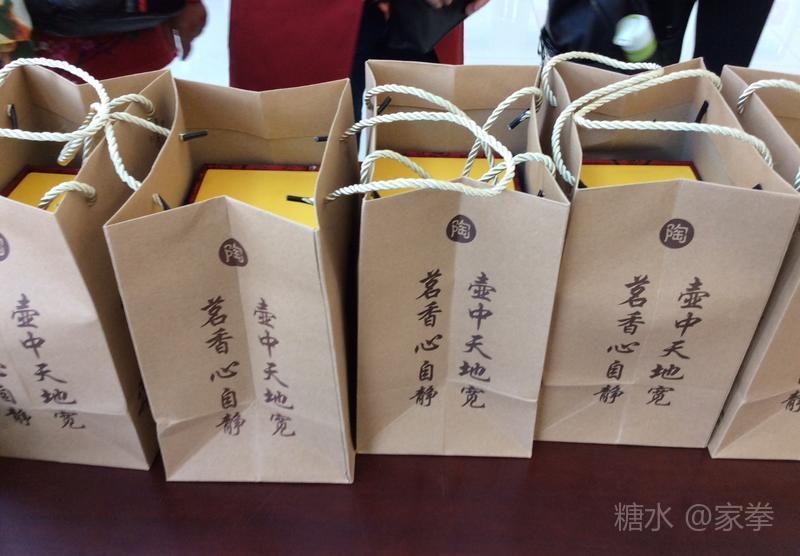 陶
壶中天地宽
茗香心自静
陶
壶中天地宽
茗香心自静
陶
壶中天地宽
茗香心自静
壶中天地宽
香心自静
糖水 @家拳